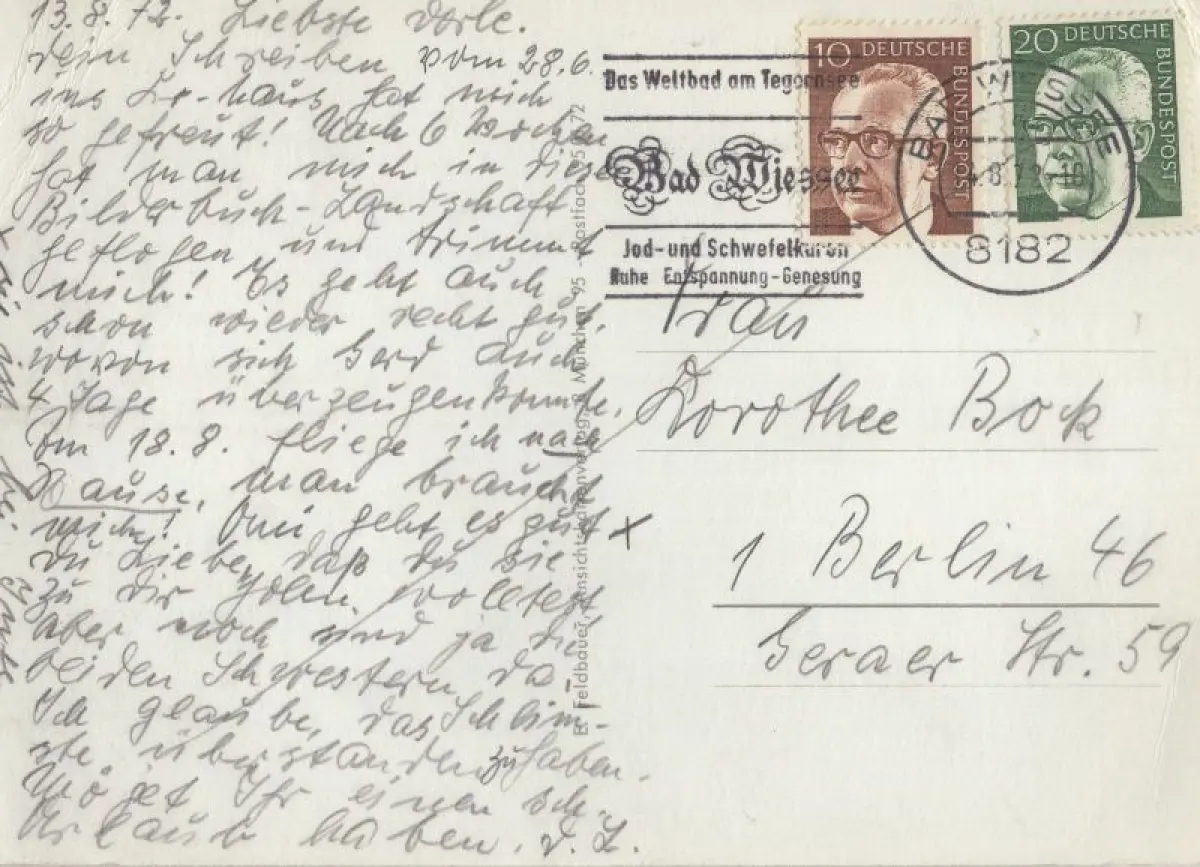 13.8.72. Liebste Dorle.
dein Schreiben vom 28.6.
ins Kr-haus hat mich
so gefreut! Nach 6 Wochen
hat man mich in diese
Bilderbuch-Landschaft
geflogen und trimmt
mich! Es geht auch
schon wieder recht gut,
wovon sich Gerd auch
4 Tage überzeugen konnte.
Am 18.8. fliege ich nach
Hause, man braucht
mich! Omi geht es gut
du Liebe, daß du sie
zu dir holen wolltest
aber noch sind ja die
beiden Schwestern da.
Ich glaube, das Schlim-
ste überstanden zu haben.
Möget Ihr einen sch.
Urlaub haben. d. L.
Das Weltbad am Tegernsee
Bad Wiessee
Jod- und Schwefelkuren
Ruhe Entspannung - Genesung
10 DEUTSCHE
BUNDESPOST
20 DEUTSCHE
BUNDESPOST
BAD WIESSEE
8182
Feldbauer, Ansichtskartenverlag, 8 München 95 - Postfach
Frau
Dorothee Bock
1 Berlin 46
Geraer Str. 59